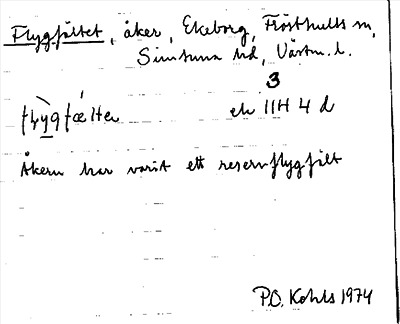 Flygfältet, åker, Ekeborg, Frösthults sn,
Simtuna hd, Västm. l.
3
flỳgfæ̀lter ek 11H 4 d
Åkern har varit ett reservflygfält
P.O. Kohls 1974